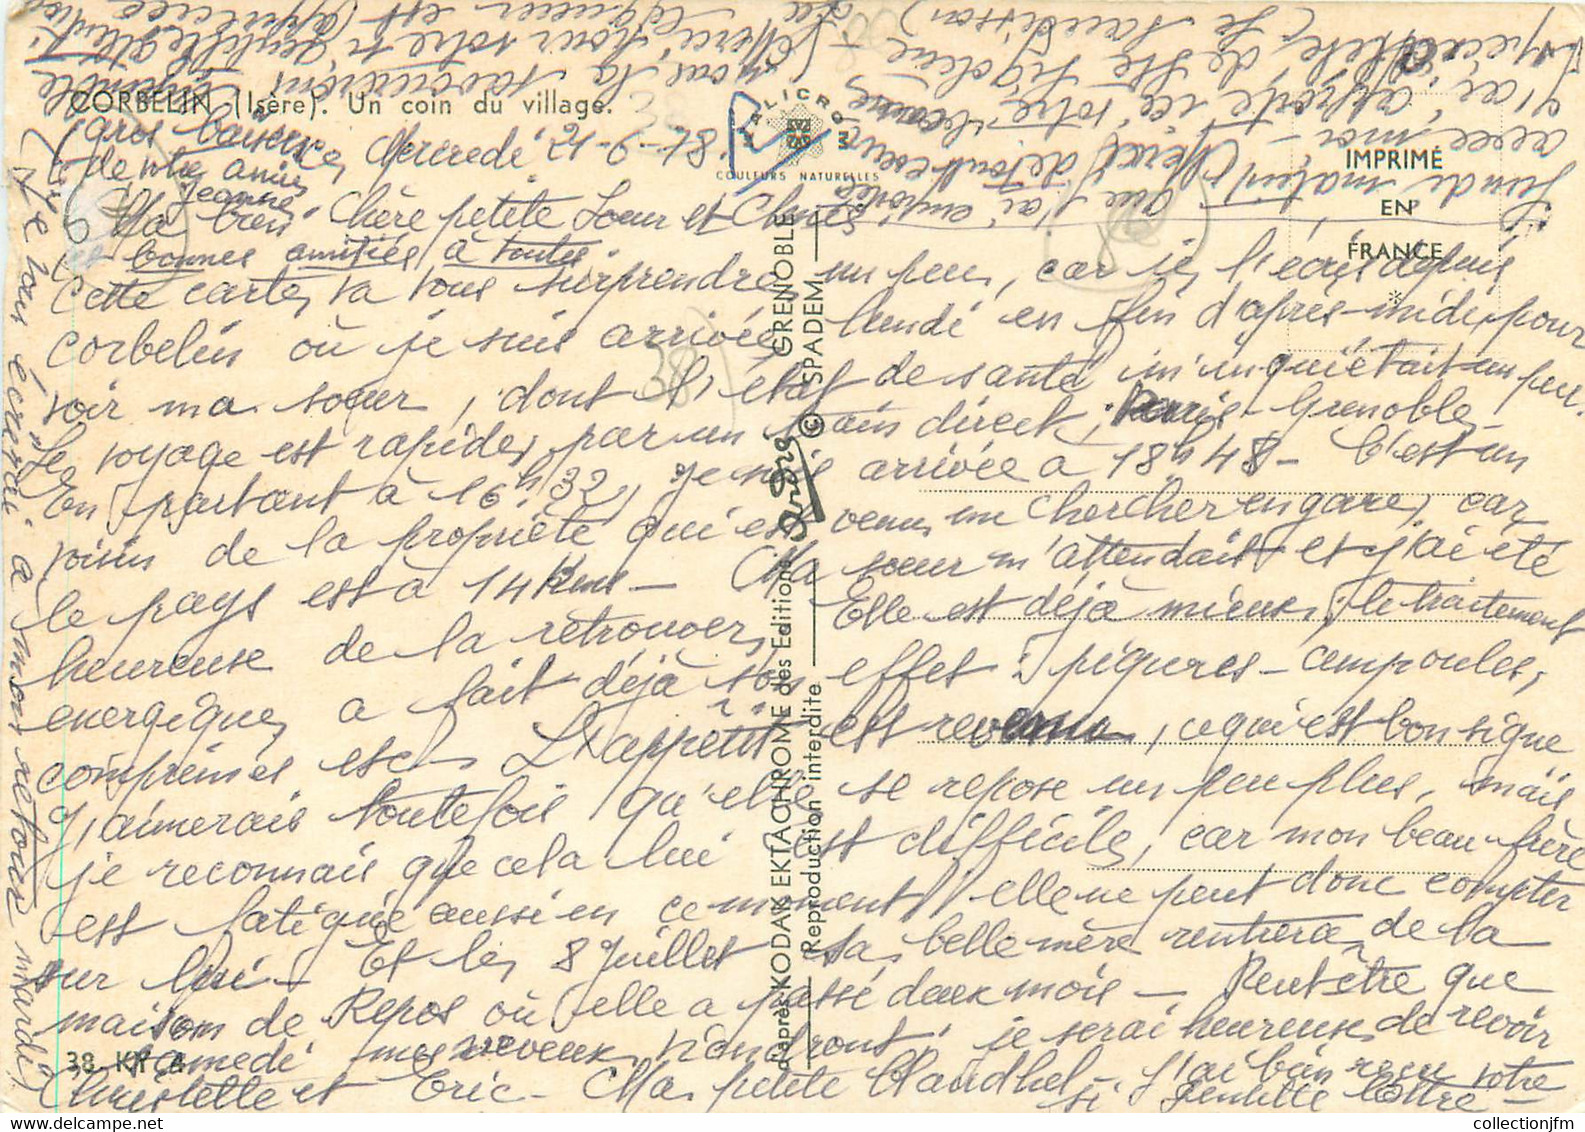 CORBELIN (Isère). Un coin du village.
VALICROM
COULEURS NATURELLES
IMPRIMÉ
EN
FRANCE
*
Mercredi 12-9-
Ma bien Chère petite Soeur et
Cette carte, va vous surprendre un peu, car je l'écris depuis
Corbelin où je suis arrivée, lundi en fin d'après-midi, pour
voir ma soeur, dont l'état de santé m'inquiétait un peu.
Le voyage est rapide, par un train direct, Paris-Grenoble,
En partant à 16h32, je suis arrivée à 18h48 - C'est un
voisin de la propriété qui est venu me chercher en gare, car
le pays est à 14 Kms - Ma soeur m'attendait et j'ai été
heureuse de la retrouver, Elle est déjà mieux, le traitement
énergique, a fait déjà son effet : piqures - ampoules,
comprimés etc. L'appétit est revenu, ce qui est bon signe
J'aimerais toutefois qu'elle se repose un peu plus, mais
je reconnais que cela lui est difficile, car mon beau-frère
est fatigué aussi en ce moment, elle ne peut donc compter
sur lui - Et le, 8 Juillet sa belle mère rentrera de la
maison de Repos où elle a passé deux mois - Peut-être que
Samedi mes neveux viendront, je serai heureuse de revoir
Christelle et Eric - Ma petite j'ai bien reçu votre
si gentille lettre
(gros baisers
de votre amie
Jeanne
et bonnes amitiés à toutes
(Je vous écrirai à mon retour mardi)
lundi matin, que j'ai emporté
avec moi - Merci de tout coeur
J'ai apporté ici votre
de Ste Sigolène -
(je saucisson)
Merci pour votre si gentille
38 KM A
d'après KODAK EKTACHROME des Editions André GRENOBLE
Reproduction interdite © SPADEM
collectionjfm